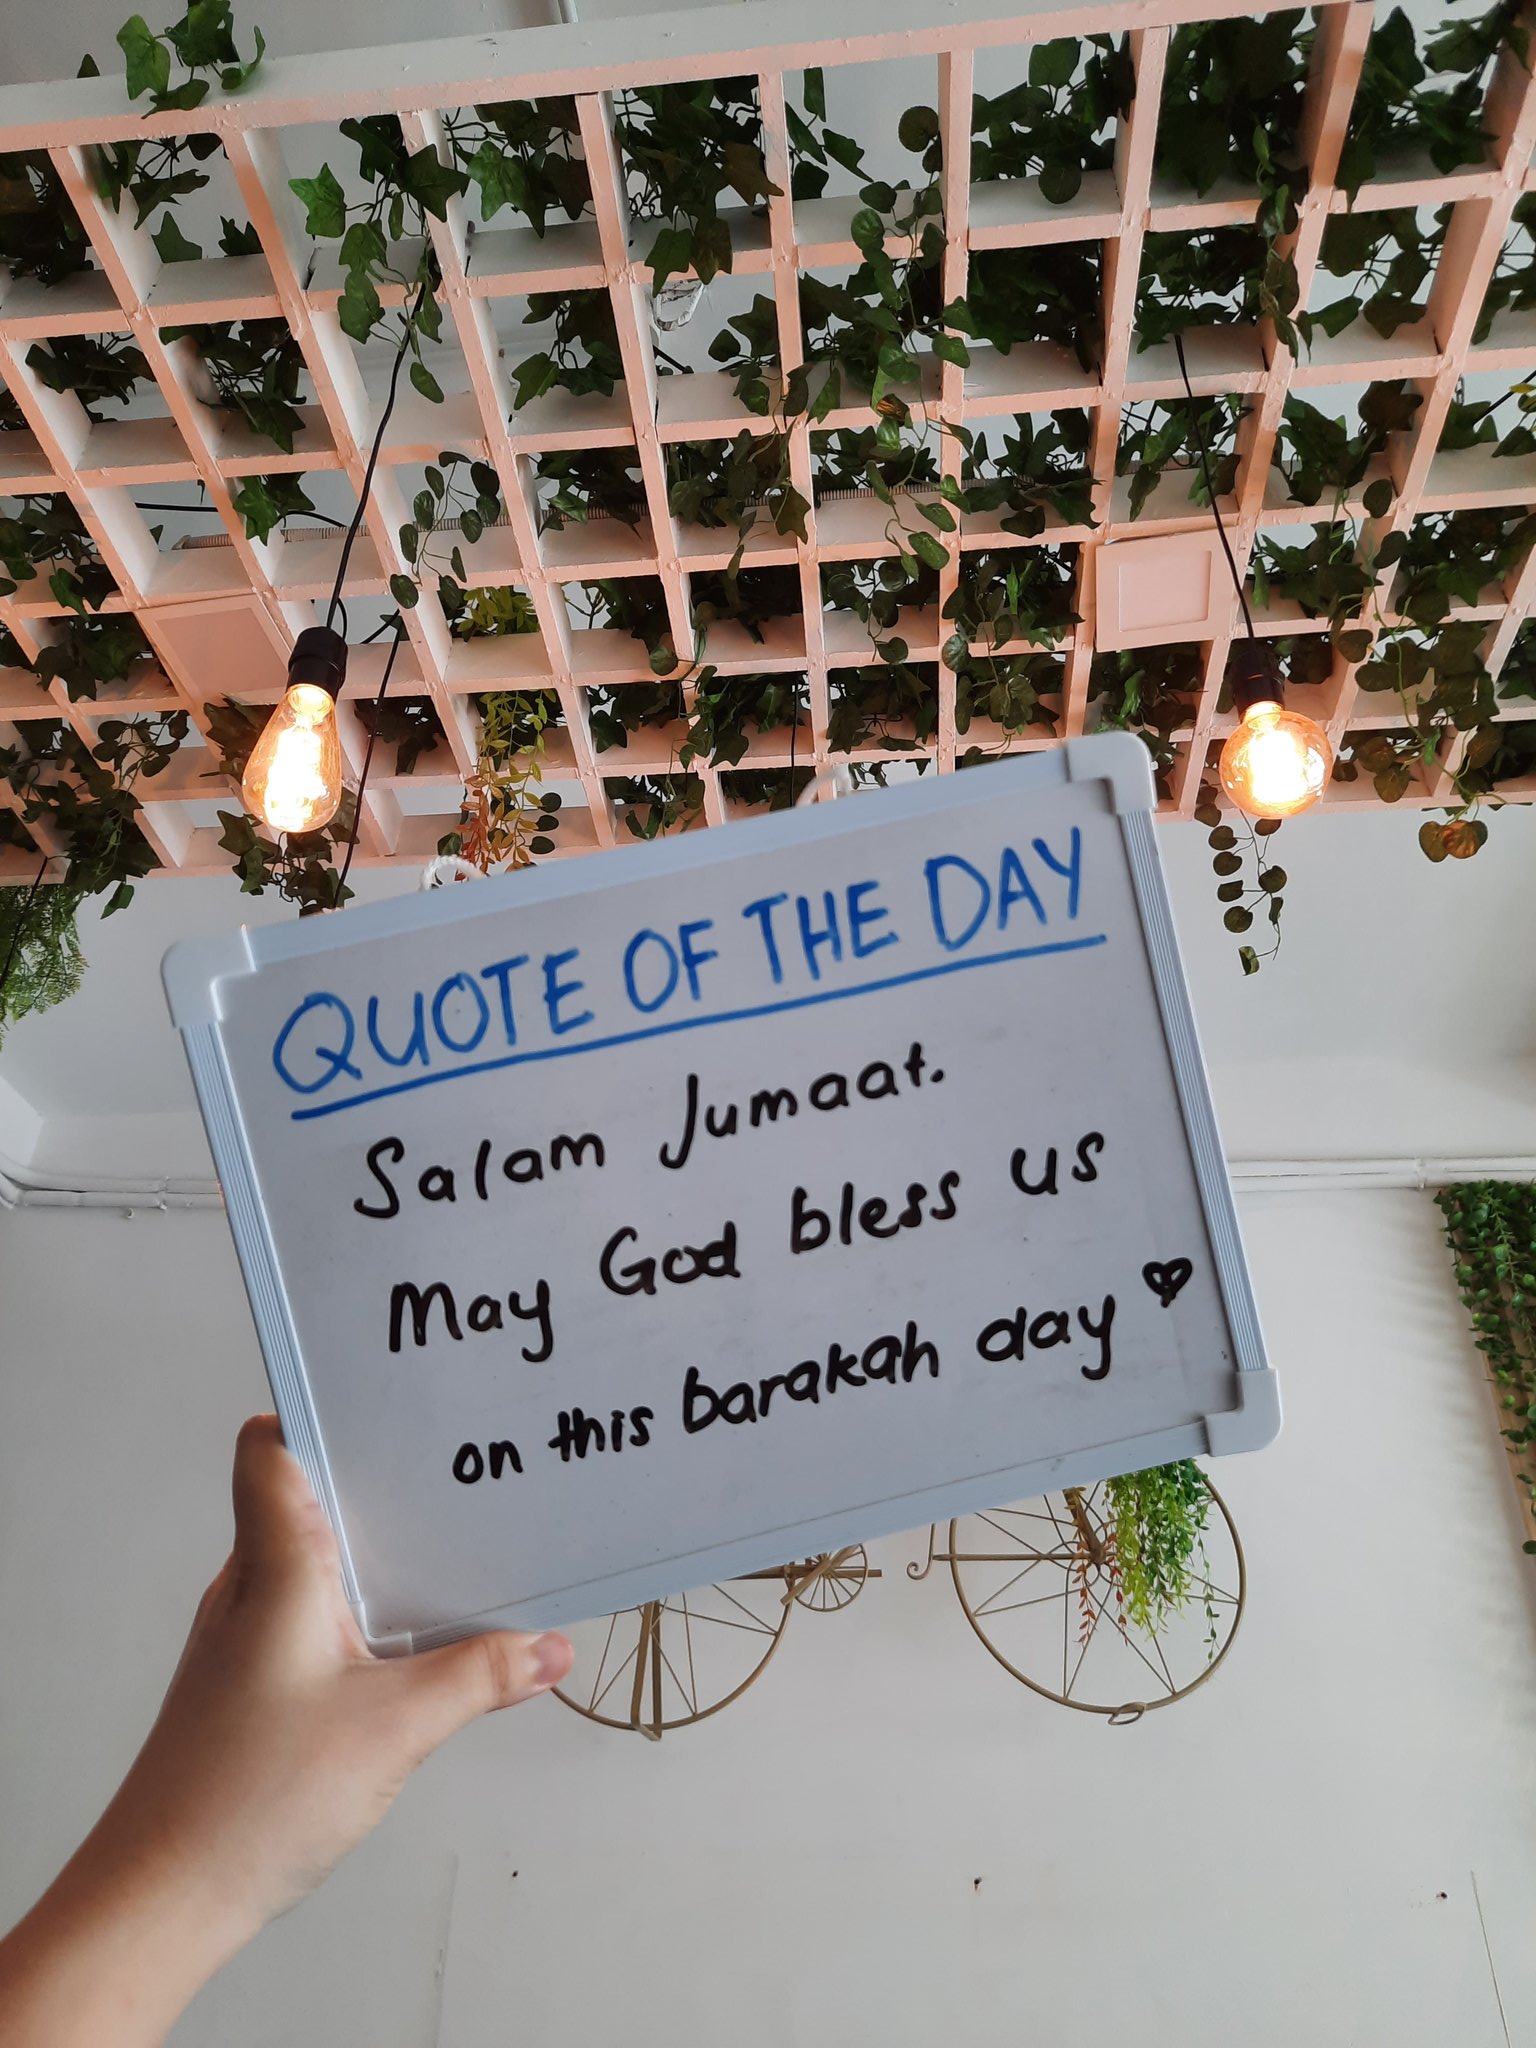 QUOTE OF THE DAY
Salam Jumaat.
May God bless us
on this barakah day